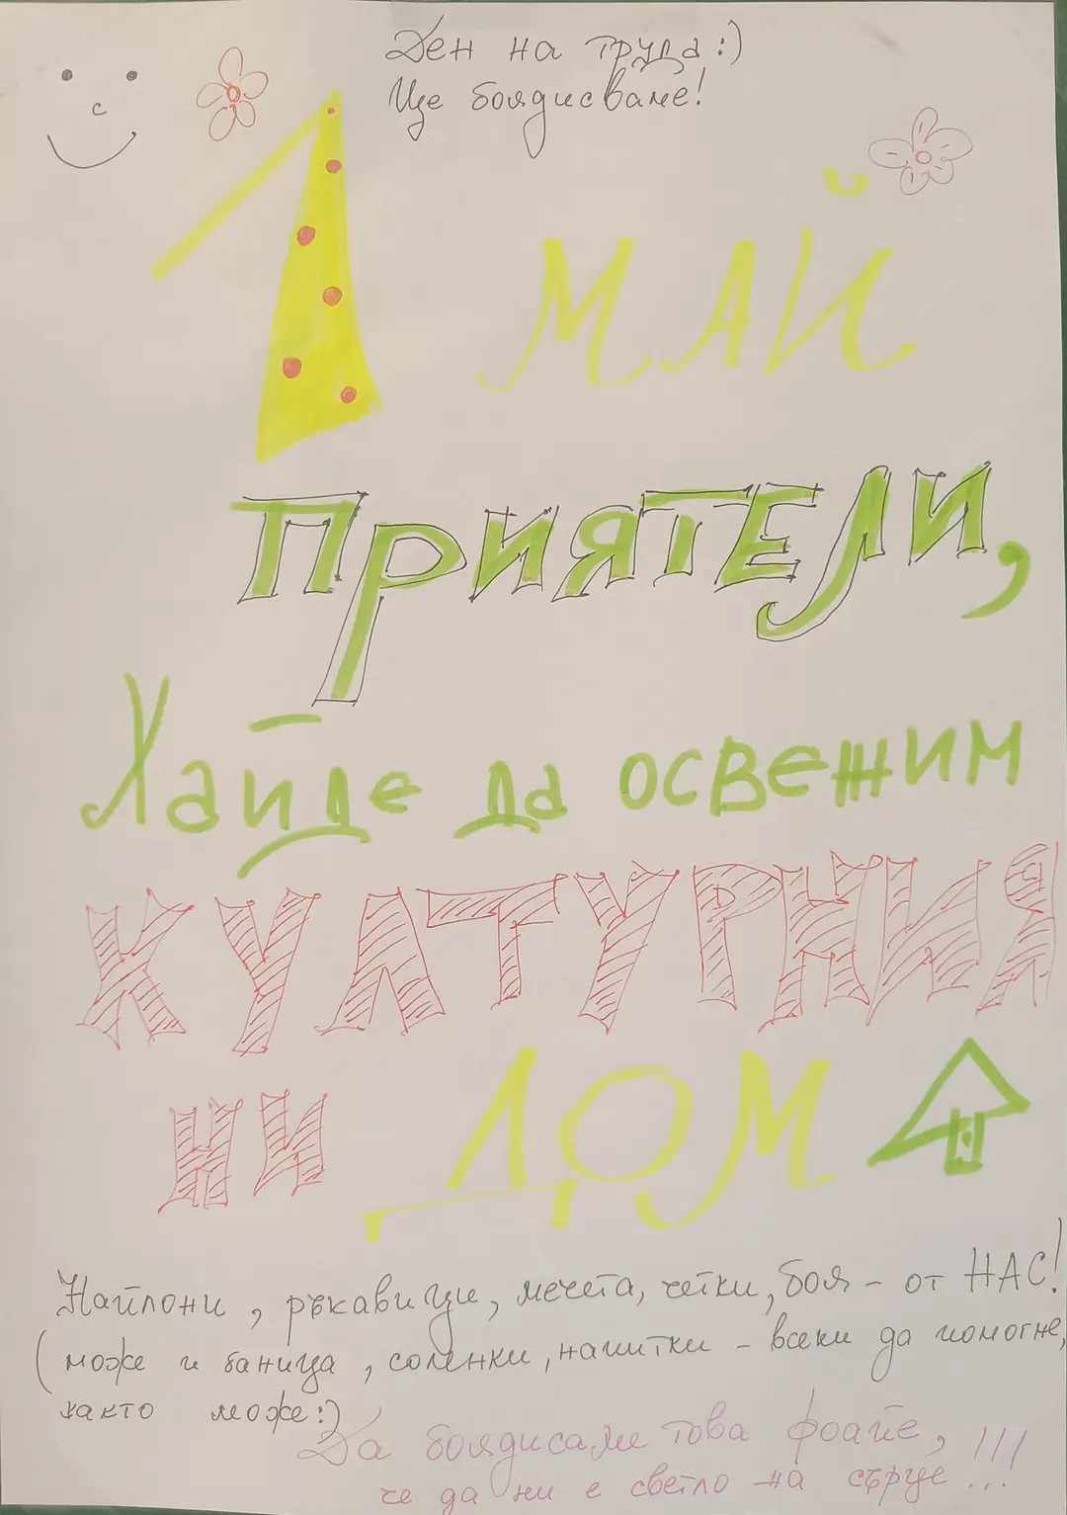 Ден на труда :)
Ще боядисваме!
1 МАЙ
ПРИЯТЕЛИ,
Хайде да освежим
КУЛТУРНИЯ
НИ ДОМ
Найлони, ръкавици, мечета, четки, боя - от НАС!
(може и баница, соленки, напитки - всеки да помогне,
както може:)
Да боядисаме това фоайе, !!!
че да ни е светло на сърце...